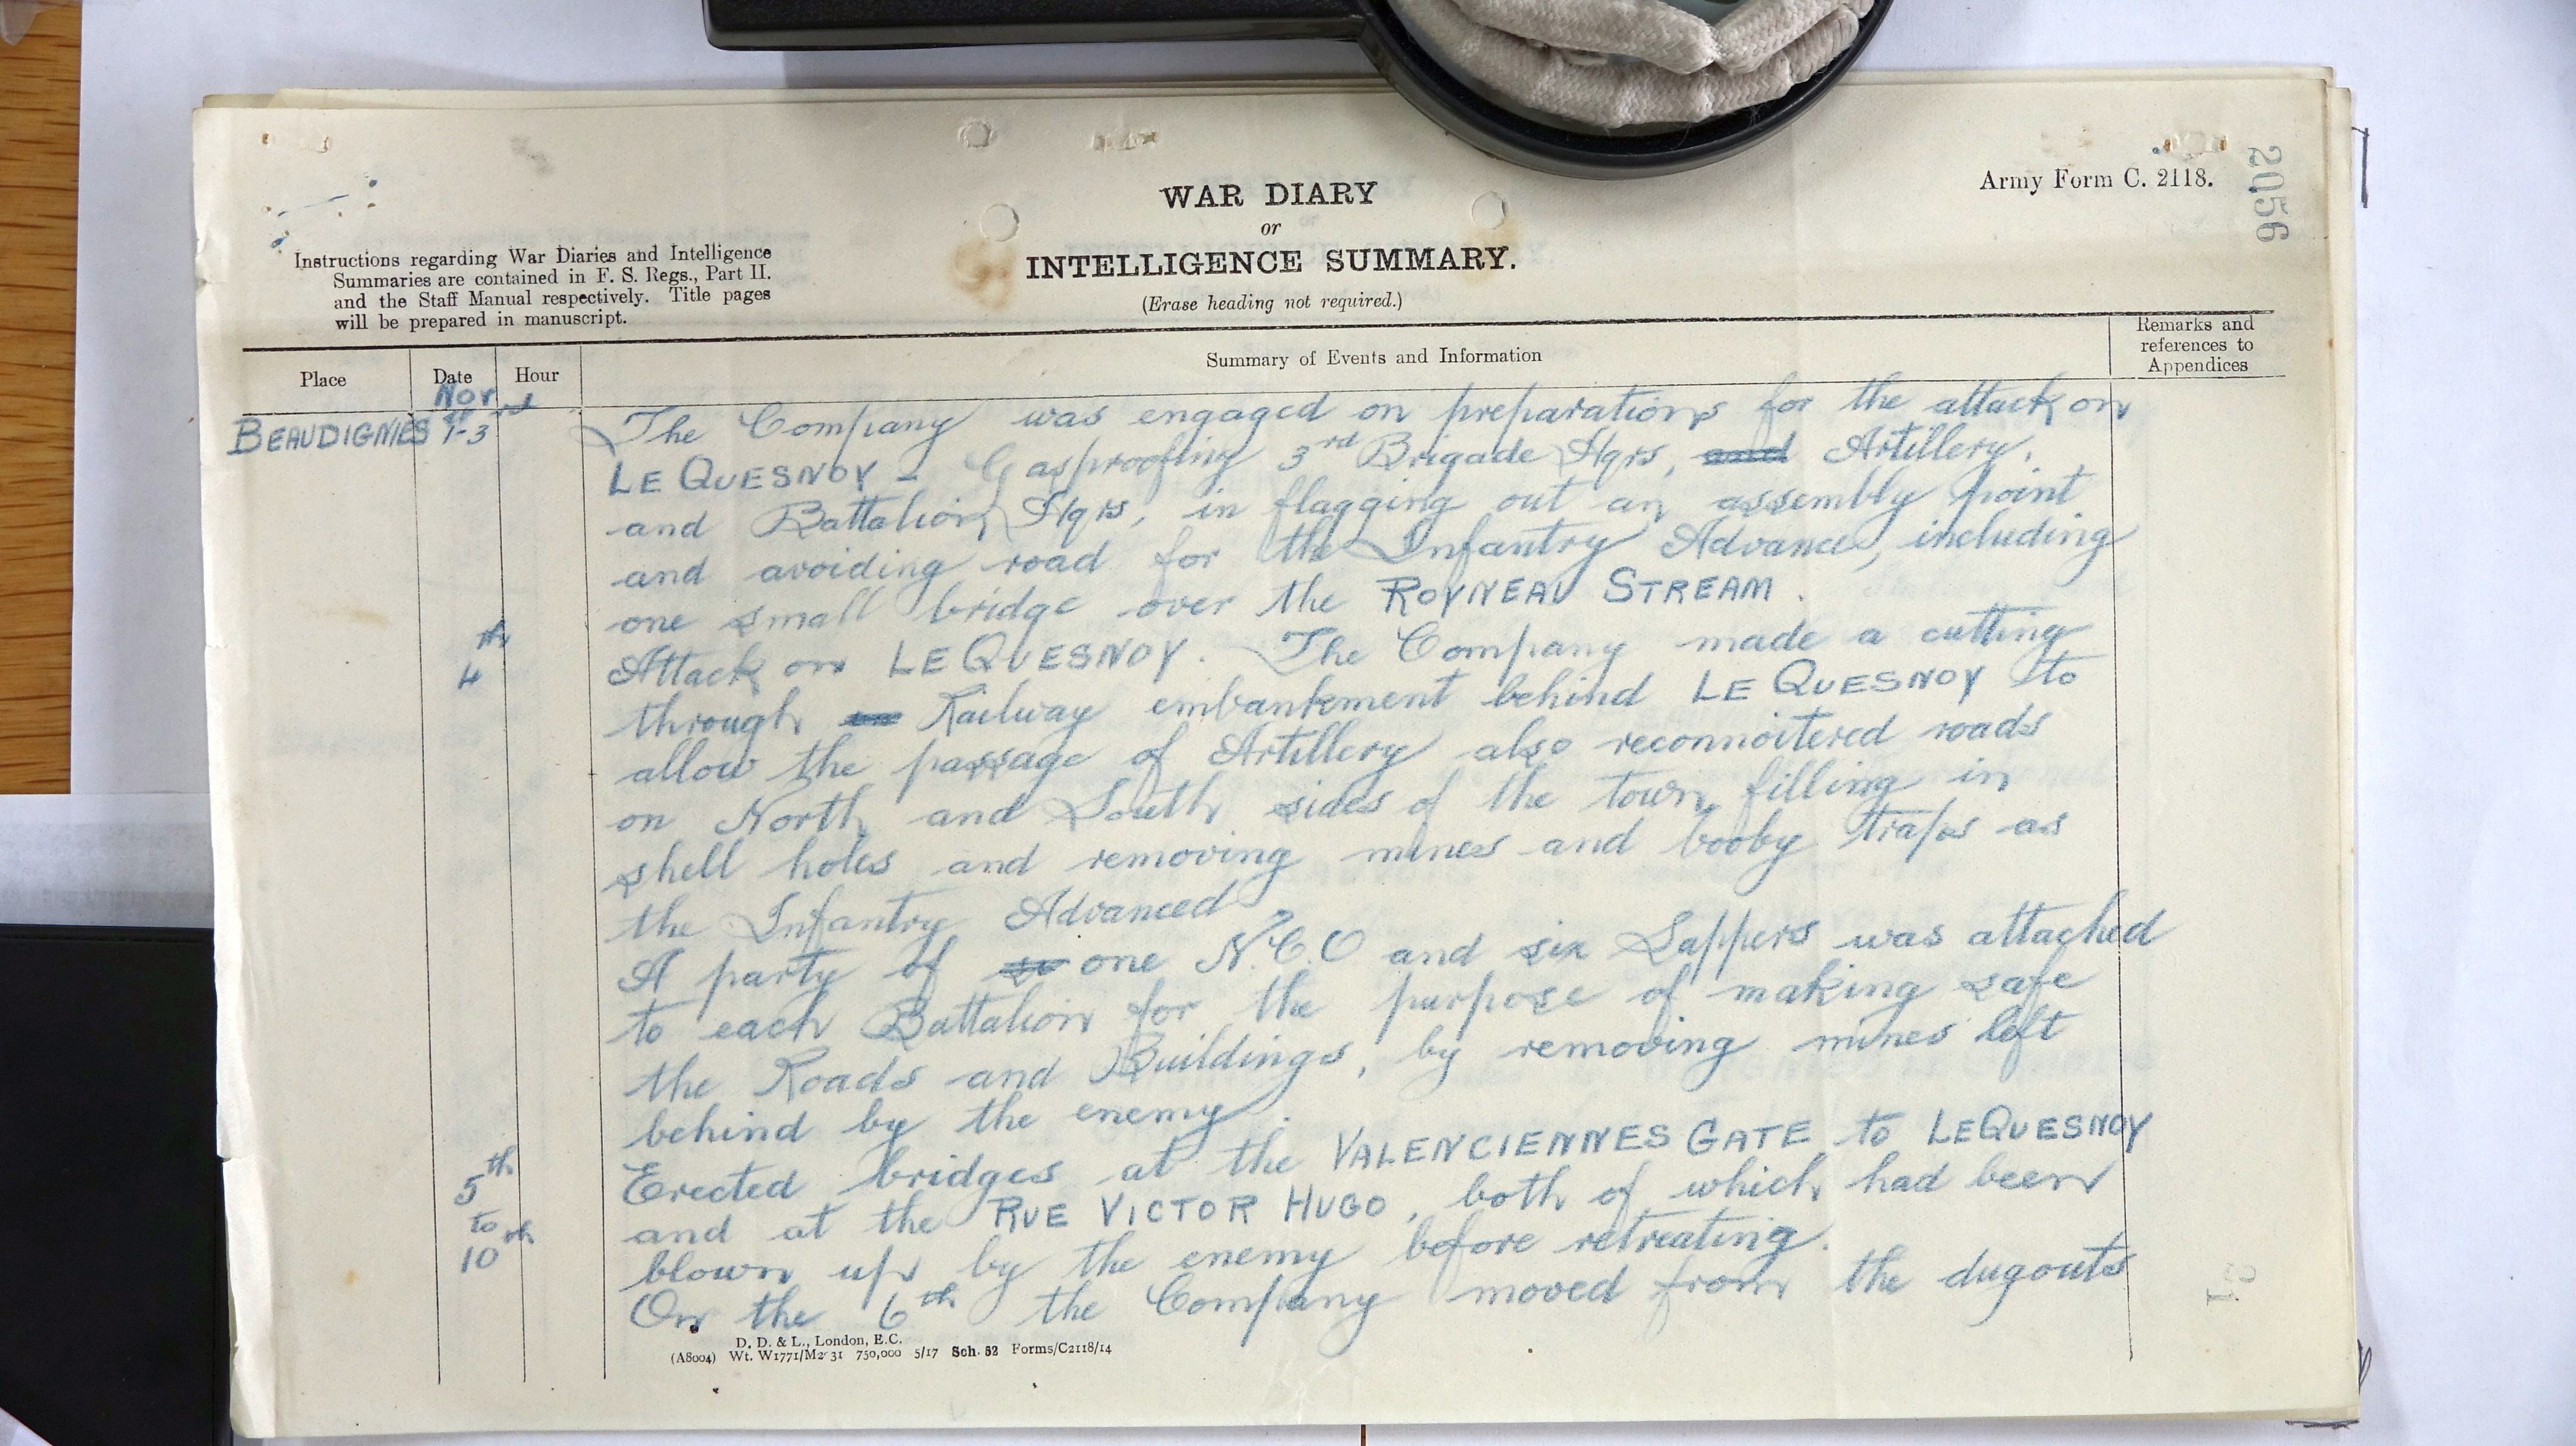 2056
Army Form C. 2118.
WAR DIARY
or
INTELLIGENCE SUMMARY.
(Erase heading not required.)
Instructions regarding War Diaries and Intelligence
Summaries are contained in F. S. Regs., Part II.
and the Staff Manual respectively. Title pages
will be prepared in manuscript.
Place Date Hour Summary of Events and Information Remarks and references to Appendices
Nov
BEAUDIGNIES 1st-3rd The Company was engaged on preparations for the attack on
LE QUESNOY - Gasproofing 3rd Brigade Hqrs, and Artillery.
and Battalion Hqrs, in flagging out an assembly point
and avoiding road for the Infantry Advance, including
one small bridge over the ROYNEAU STREAM.
4th Attack on LE QUESNOY. The Company made a cutting
through Railway embankement behind LE QUESNOY to
allow the passage of Artillery also reconnoitered roads
on North and South sides of the town, filling in
shell holes and removing mines and booby traps as
the Infantry Advanced
A party of one N.C.O and six Sappers was attached
to each Battalion for the purpose of making safe
the Roads and Buildings, by removing mines left
behind by the enemy.
5th Erected bridges at the VALENCIENNES GATE to LE QUESNOY
to and at the RUE VICTOR HUGO, both of which had been
10th blown up by the enemy before retreating.
On the 6th the Company moved from the dugouts
D. D. & L., London, E.C.
(A8004) Wt. W1771/M2 31 750,000 5/17 Sch. 52 Forms/C2118/14